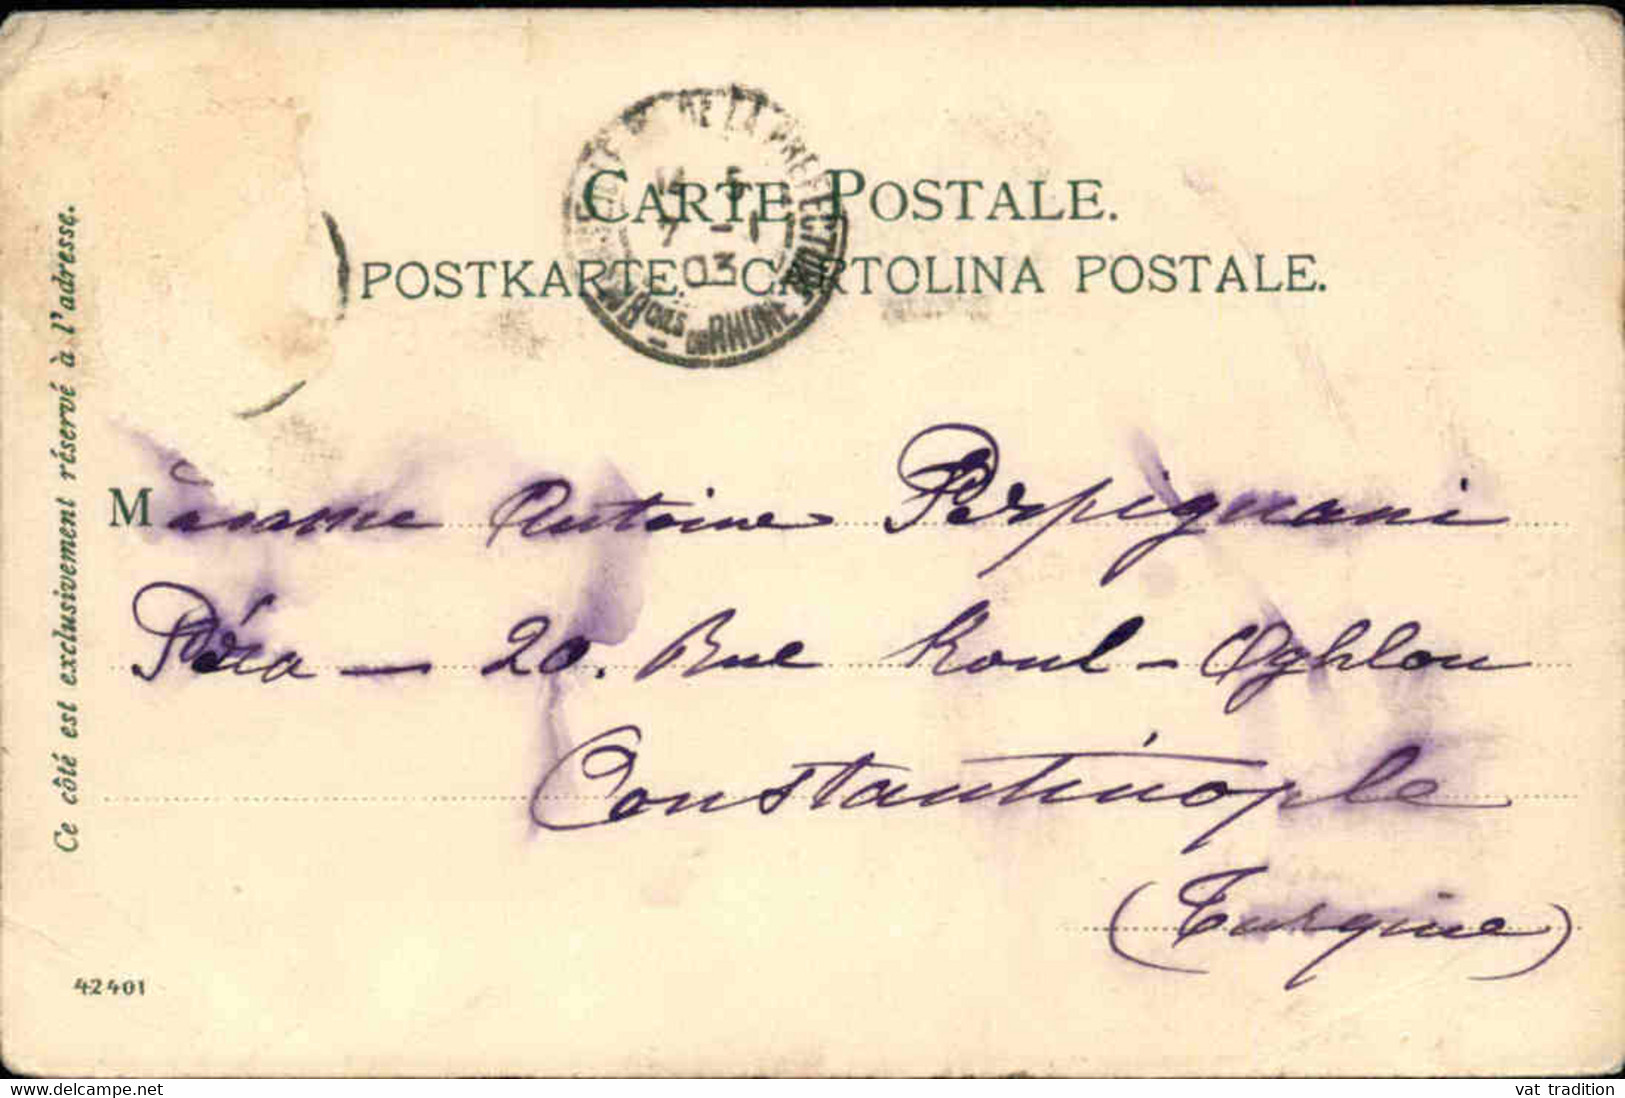 CARTE POSTALE.
POSTKARTE. CARTOLINA POSTALE.
DE LA PREFECTURE
7 - 1
03
Bches du RHONE
Ce côté est exclusivement réservé à l'adresse.
Madame Antoine Perpignani
Péra — 20. Rue Koul-Oghlou
Constantinople
(Turquie)
42401
delcampe.net
vat tradition